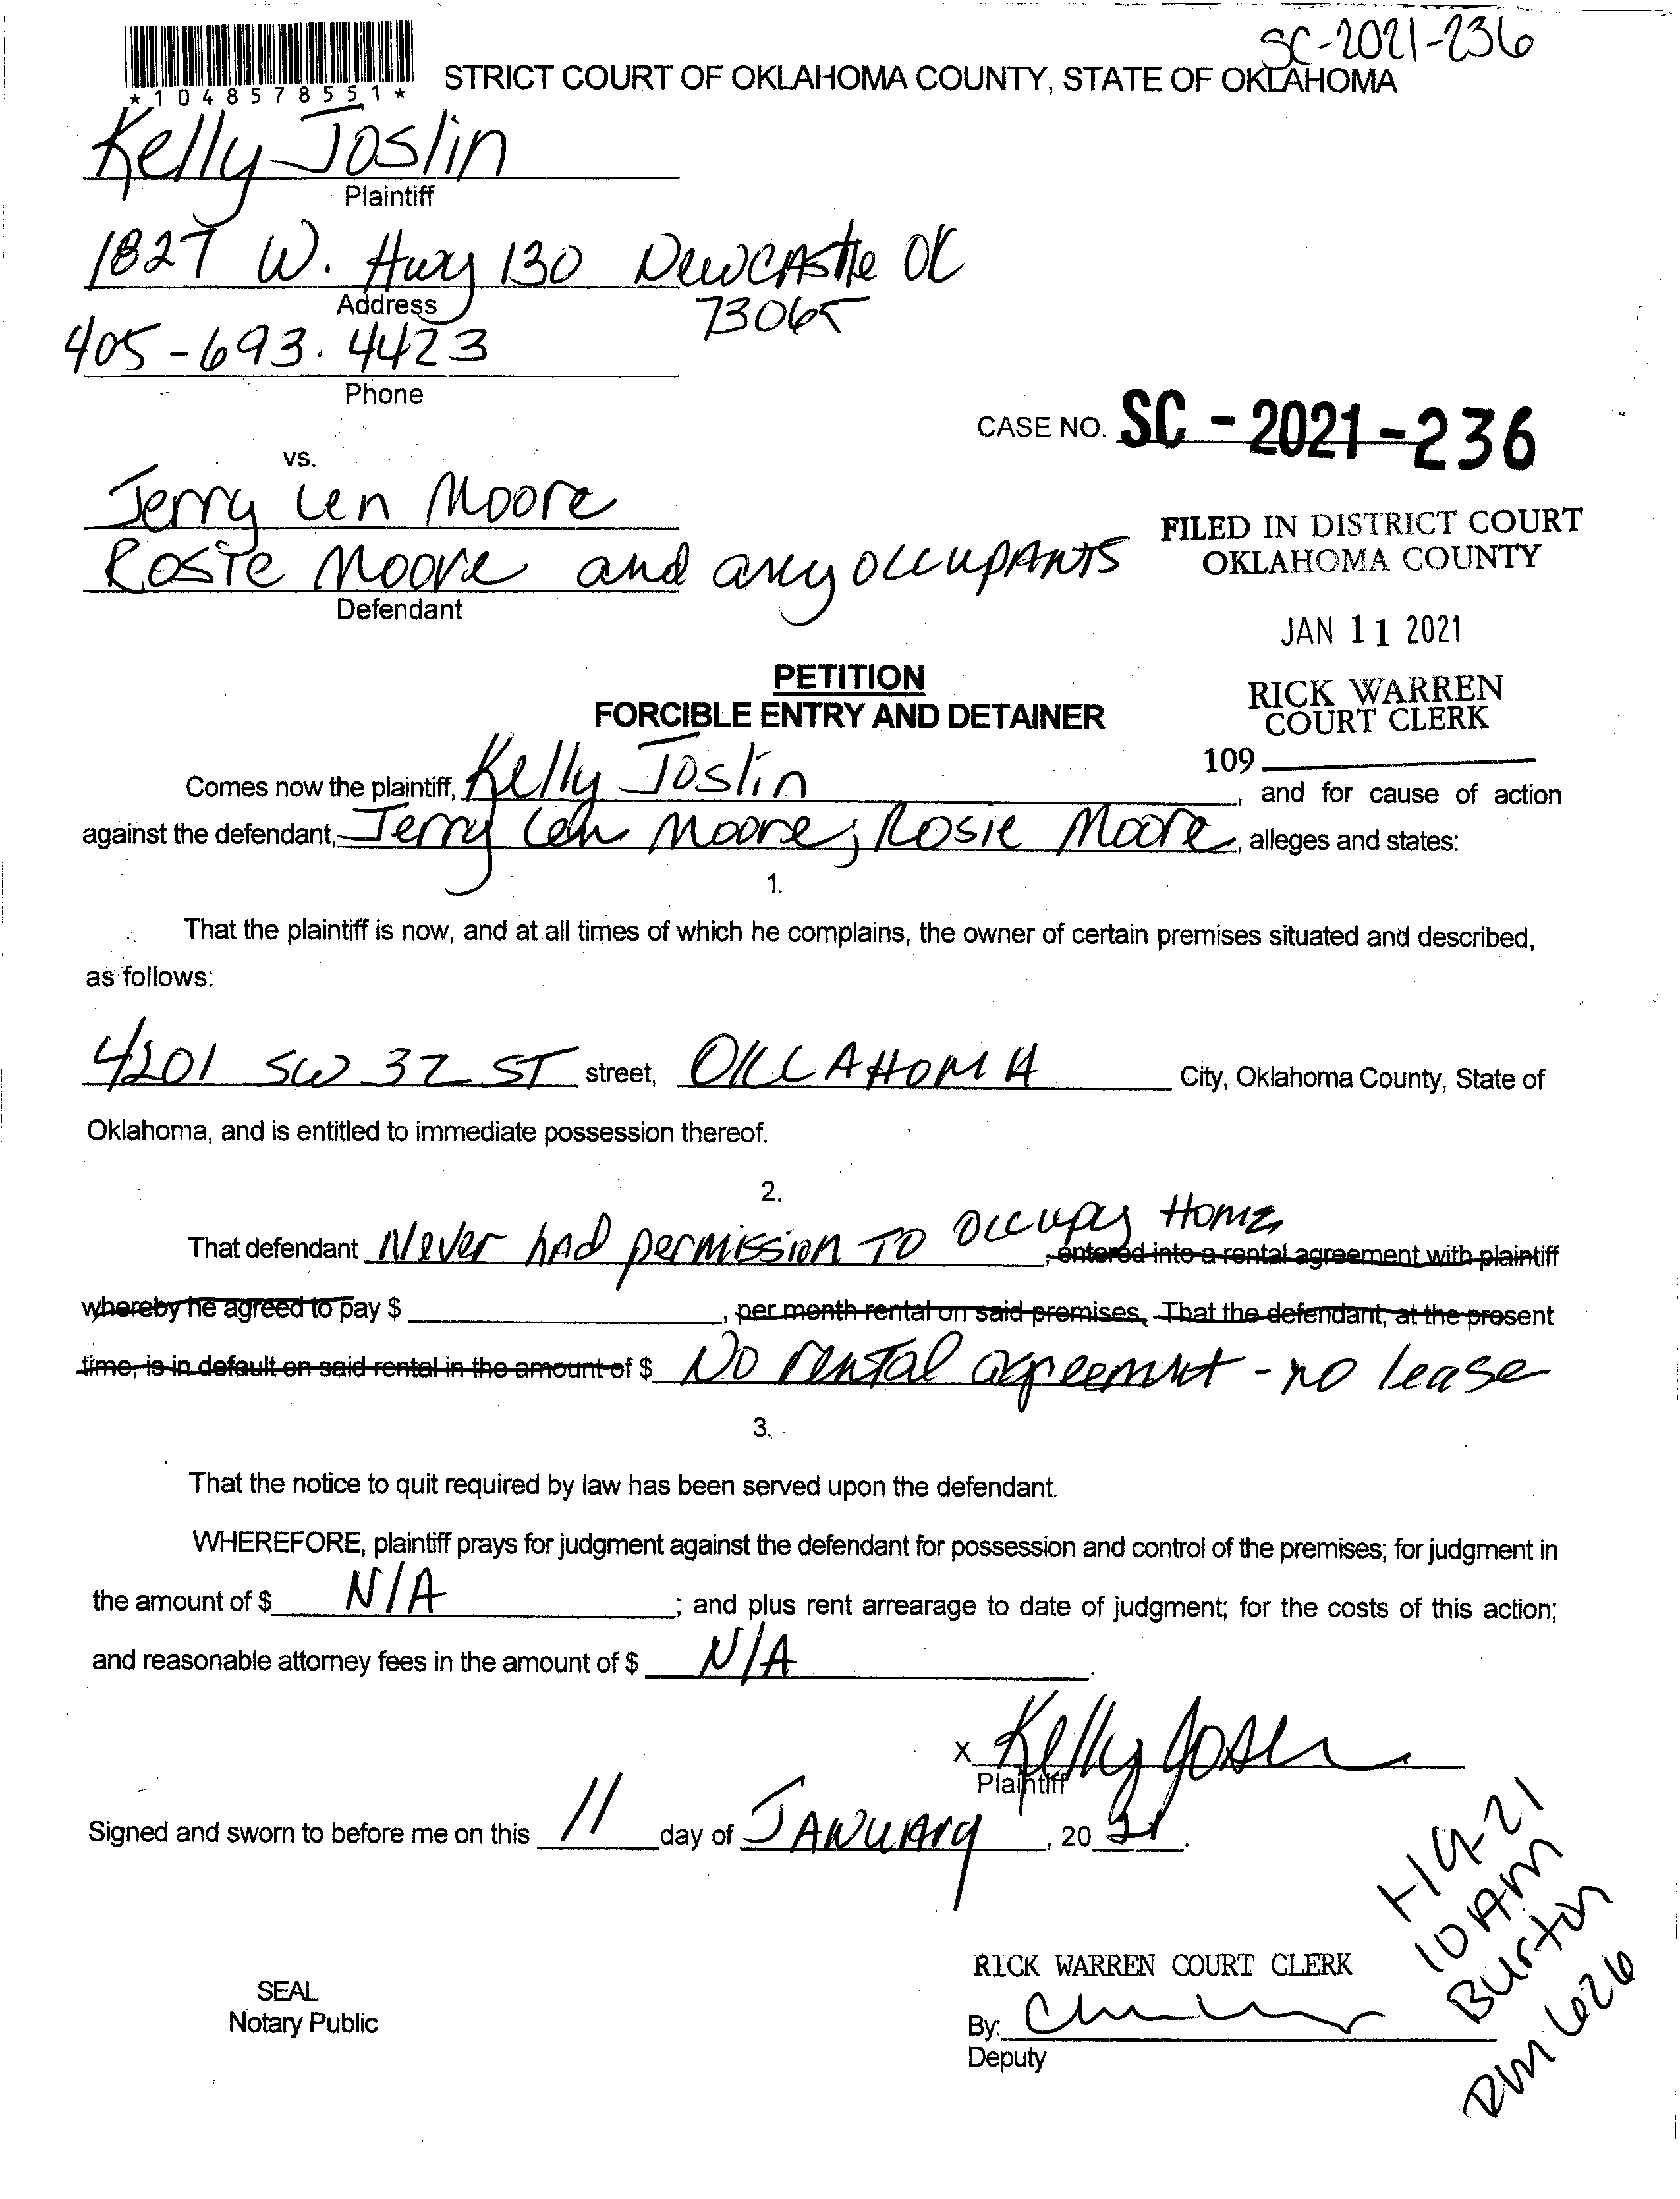 SC-2021-236
*1048578551*
STRICT COURT OF OKLAHOMA COUNTY, STATE OF OKLAHOMA
Kelly Joslin
Plaintiff
1827 W. Hwy 130 Newcastle OK
Address
73065
405-693.4423
Phone
CASE NO. SC-2021-236
vs.
Jerry Len Moore
Rosie Moore and any occupants
Defendant
FILED IN DISTRICT COURT
OKLAHOMA COUNTY
JAN 11 2021
PETITION
FORCIBLE ENTRY AND DETAINER
RICK WARREN
COURT CLERK
109
Comes now the plaintiff, Kelly Joslin, and for cause of action
against the defendant, Jerry Len Moore; Rosie Moore, alleges and states:
1.
That the plaintiff is now, and at all times of which he complains, the owner of certain premises situated and described,
as follows:
4201 SW 32 ST street, OKLAHOMA City, Oklahoma County, State of
Oklahoma, and is entitled to immediate possession thereof.
2.
That defendant Never had permission TO occupy Home, entered into a rental agreement with plaintiff
whereby he agreed to pay $ , per month rental on said premises. That the defendant, at the present
time, is in default on said rental in the amount of $ No rental agreement - no lease
3.
That the notice to quit required by law has been served upon the defendant.
WHEREFORE, plaintiff prays for judgment against the defendant for possession and control of the premises; for judgment in
the amount of $ N/A ; and plus rent arrearage to date of judgment; for the costs of this action;
and reasonable attorney fees in the amount of $ N/A.
x Kelly Joslin
Plaintiff
Signed and sworn to before me on this 11 day of JANUARY, 20 21.
1-19-21
10 AM
Burton
RM 626
RICK WARREN COURT CLERK
SEAL
Notary Public
By:
Deputy